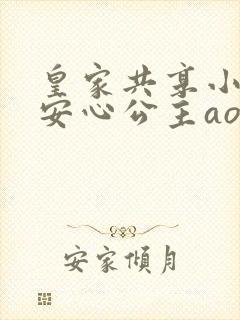 皇家共享小
安心公主ao
安家倾月